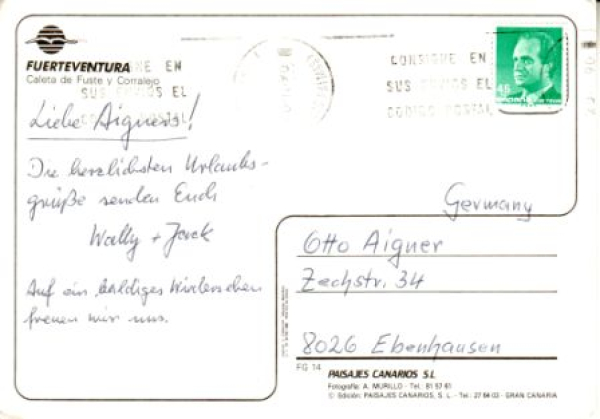 FUERTEVENTURA
Caleta de Fuste y Corralejo
CONSIGNE EN
SUS ENVIOS EL
CODIGO POSTAL
45
Liebe Aigners!
Die herzlichsten Urlaubs-
grüße senden Euch
Wally + Jack
Auf ein baldiges Wiedersehen
freuen wir uns.
Germany
Otto Aigner
Zechstr. 34
8026 Ebenhausen
FG 14
PAISAJES CANARIOS S.L
Fotografía: A. MURILLO - Tel.: 81 57 61
© Edición: PAISAJES CANARIOS, S. L. - Tel.: 27 84 03 - GRAN CANARIA